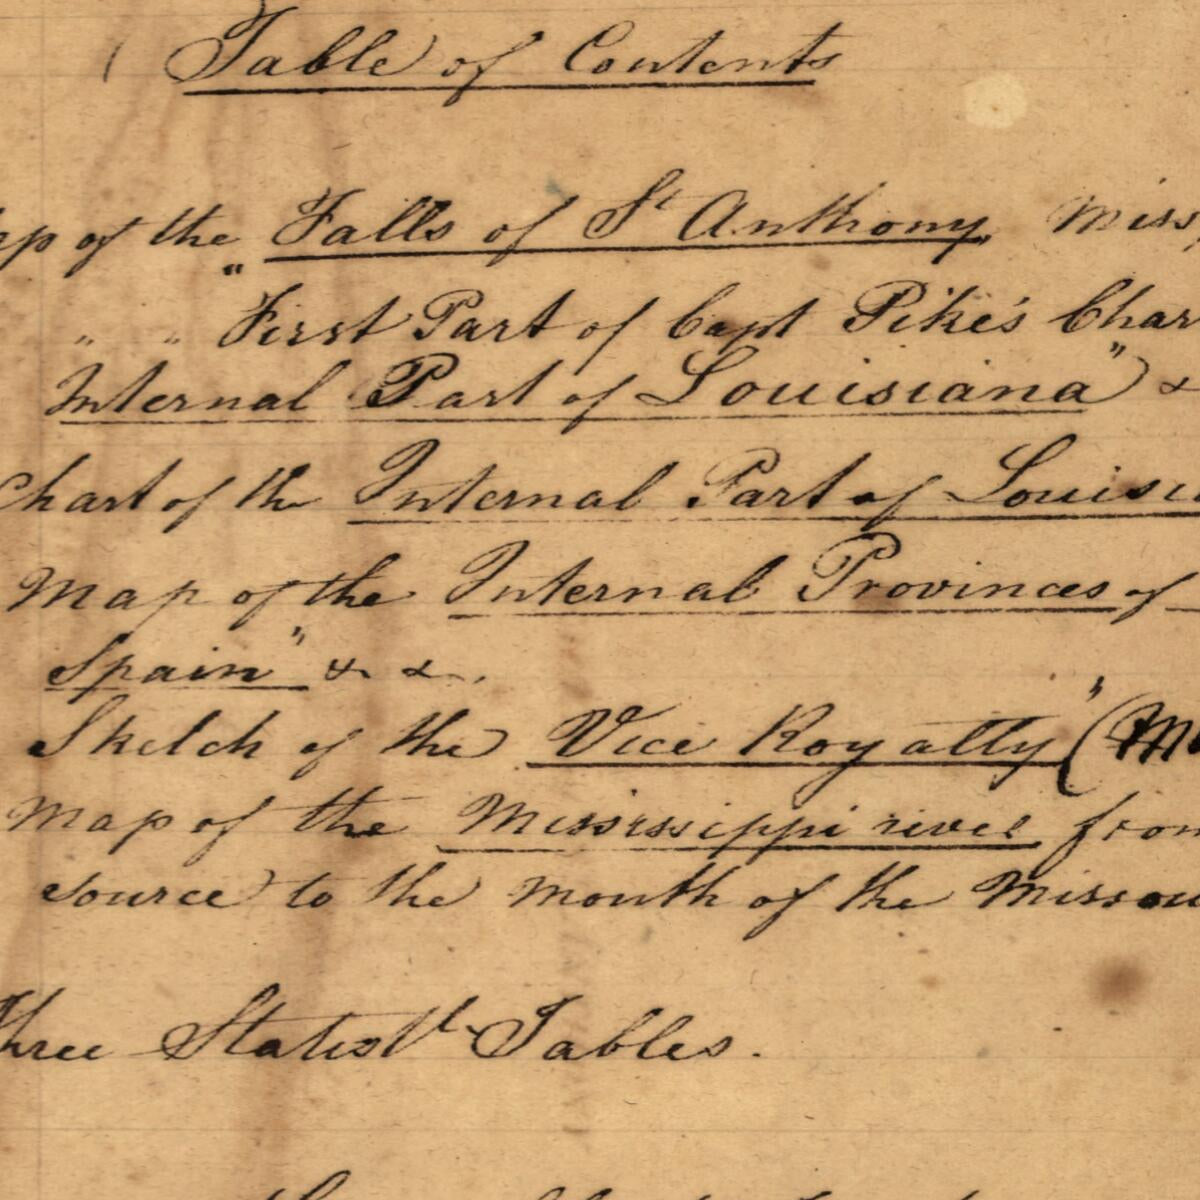 Table of Contents
of the Falls of St Anthony Miss
" " "First Part of Capt Pike's Char
Internal Part of Louisiana" &
Chart of the Internal Part of Louisi
Map of the Internal Provinces of
Spain" & &.
Sketch of the Vice Royalty" (
Map of the Mississippi river from
source to the mouth of the Missou
Three Statistl Tables.